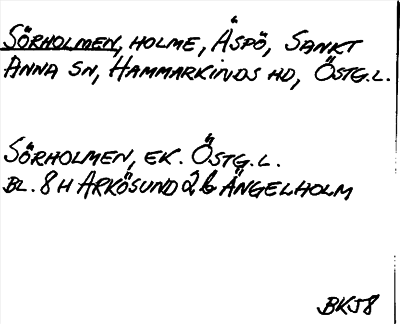 SÖRHOLMEN, HOLME, ÅSPÖ, SANKT
ANNA SN, HAMMARKINDS HD, ÖSTG.L.
SÖRHOLMEN, EK. ÖSTG.L.
BL. 8H ARKÖSUND 2b ÄNGELHOLM
BKJ8